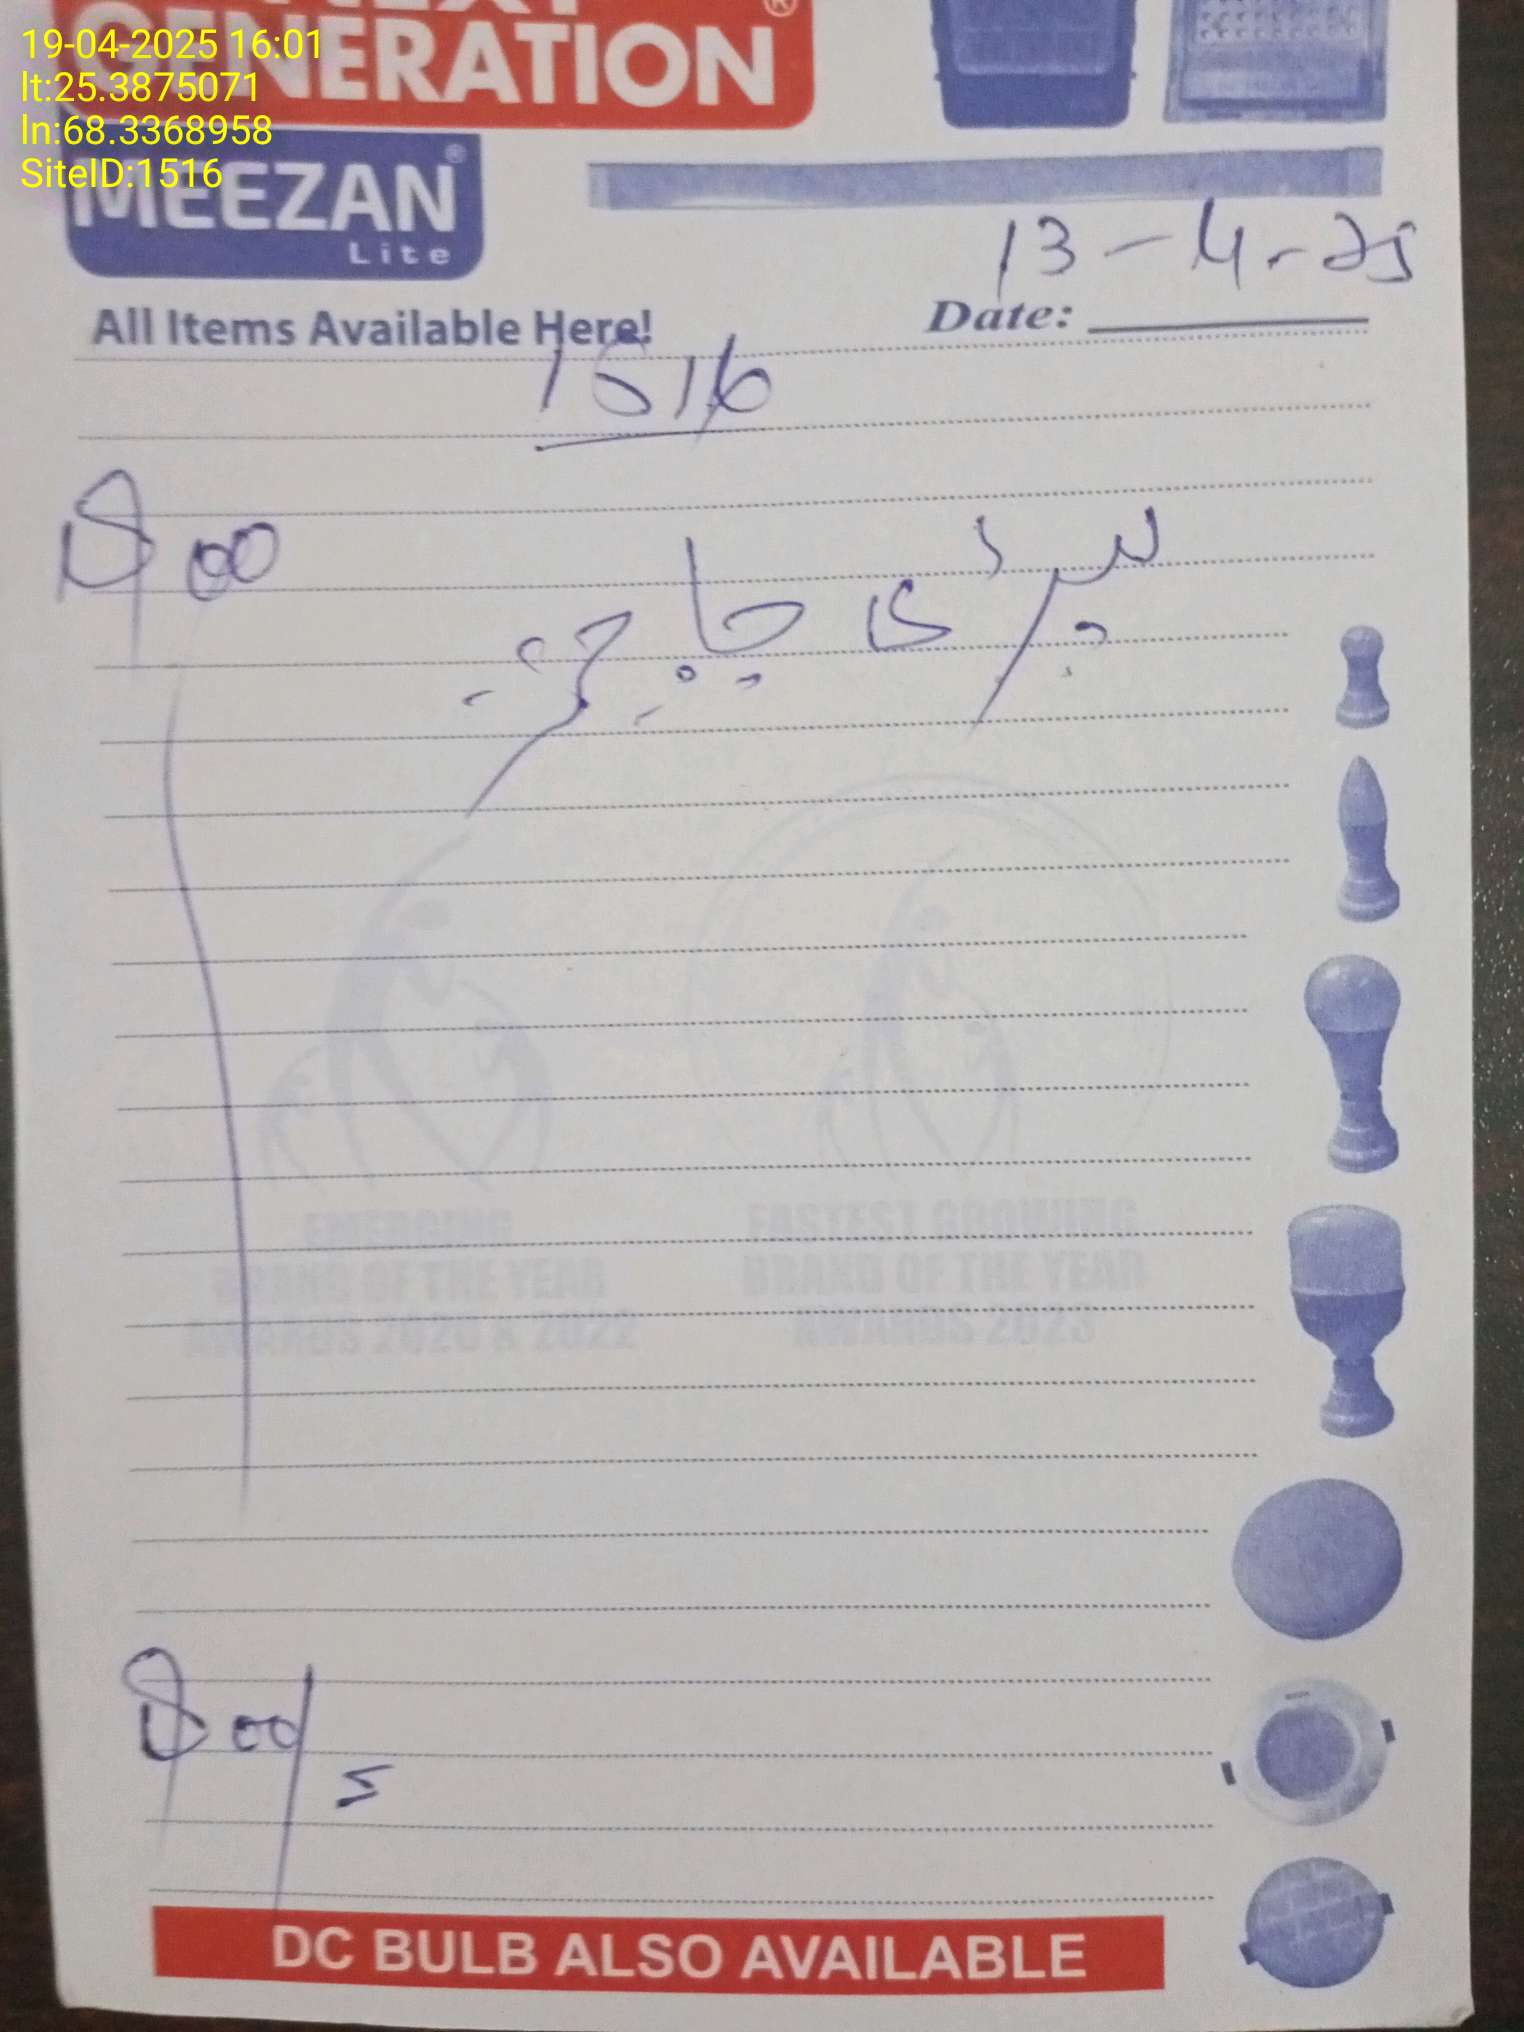 NEXT
GENERATION ®
19-04-2025 16:01
lt:25.3875071
ln:68.3368958
SiteID:1516
MEEZAN®
Lite
13-4-25
All Items Available Here!
Date:
1516
00
EMERGING
BRAND OF THE YEAR
AWARDS 2020 & 2022
FASTEST GROWING
BRAND OF THE YEAR
AWARDS 2023
DC BULB ALSO AVAILABLE